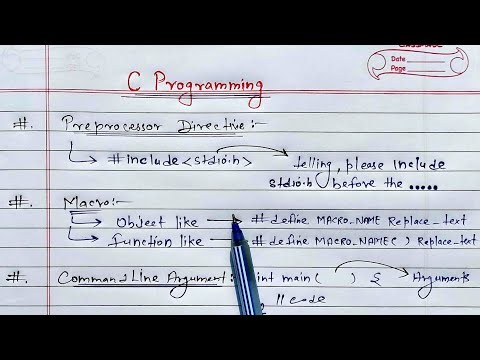 CLASSMATE
Date
Page
C Programming
#. Preprocessor Directive :-
→ #include <stdio.h> telling, please include
stdio.h before the .....
#. Macro:-
→ Object like → # define MACRO_NAME Replace_text
→ function like → # define MACRO_NAME( ) Replace_text
#. Command Line Argument :- int main( ) { Arguments
// code